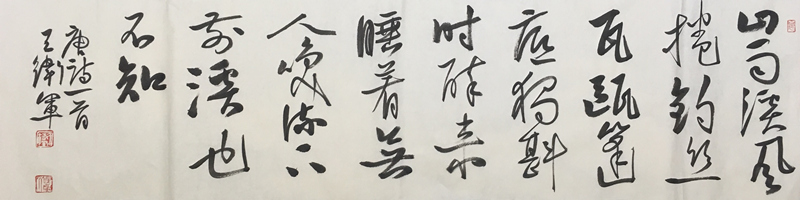 山雨溪风
捲钓丝
瓦甌篷
底獨斟
时醉来
睡着無
人唤流下
前溪也
不知
唐诗一首
王衛軍